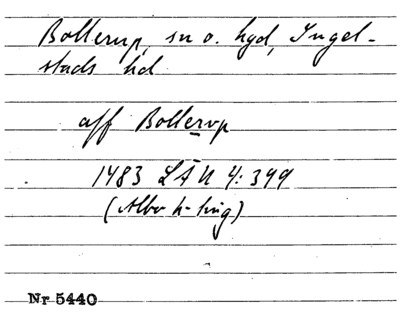 Bollerup, sn o. hgd, Ingel-
stads hd
aff Bollerup
1483 LÄU 4: 399
(Albo h-ting)
Nr 5440